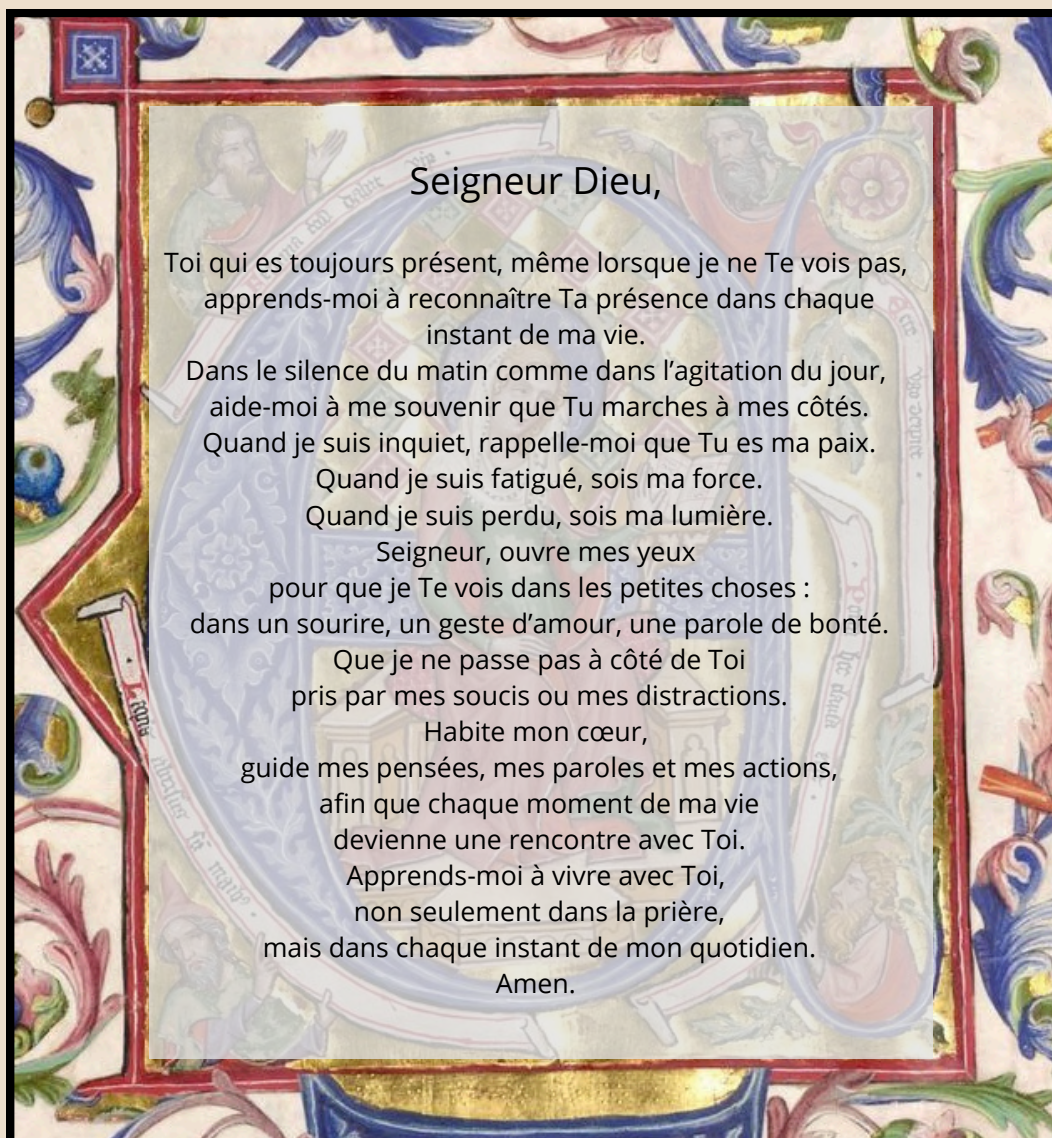 Seigneur Dieu,
Toi qui es toujours présent, même lorsque je ne Te vois pas,
apprends-moi à reconnaître Ta présence dans chaque
instant de ma vie.
Dans le silence du matin comme dans l’agitation du jour,
aide-moi à me souvenir que Tu marches à mes côtés.
Quand je suis inquiet, rappelle-moi que Tu es ma paix.
Quand je suis fatigué, sois ma force.
Quand je suis perdu, sois ma lumière.
Seigneur, ouvre mes yeux
pour que je Te vois dans les petites choses :
dans un sourire, un geste d’amour, une parole de bonté.
Que je ne passe pas à côté de Toi
pris par mes soucis ou mes distractions.
Habite mon cœur,
guide mes pensées, mes paroles et mes actions,
afin que chaque moment de ma vie
devienne une rencontre avec Toi.
Apprends-moi à vivre avec Toi,
non seulement dans la prière,
mais dans chaque instant de mon quotidien.
Amen.